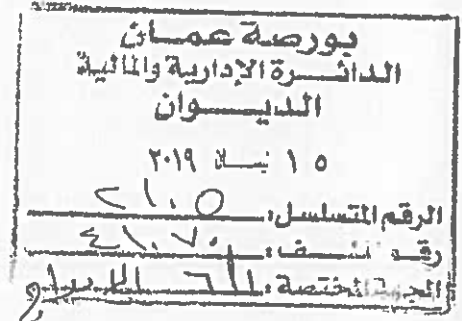 بورصة عمان
الدائرة الإدارية والمالية
الديوان
١٥ نيسان ٢٠١٩
الرقم المتسلسل: ٢١٠٥
رقم الملف: ٤١٠٧٠
الجهة المختصة: